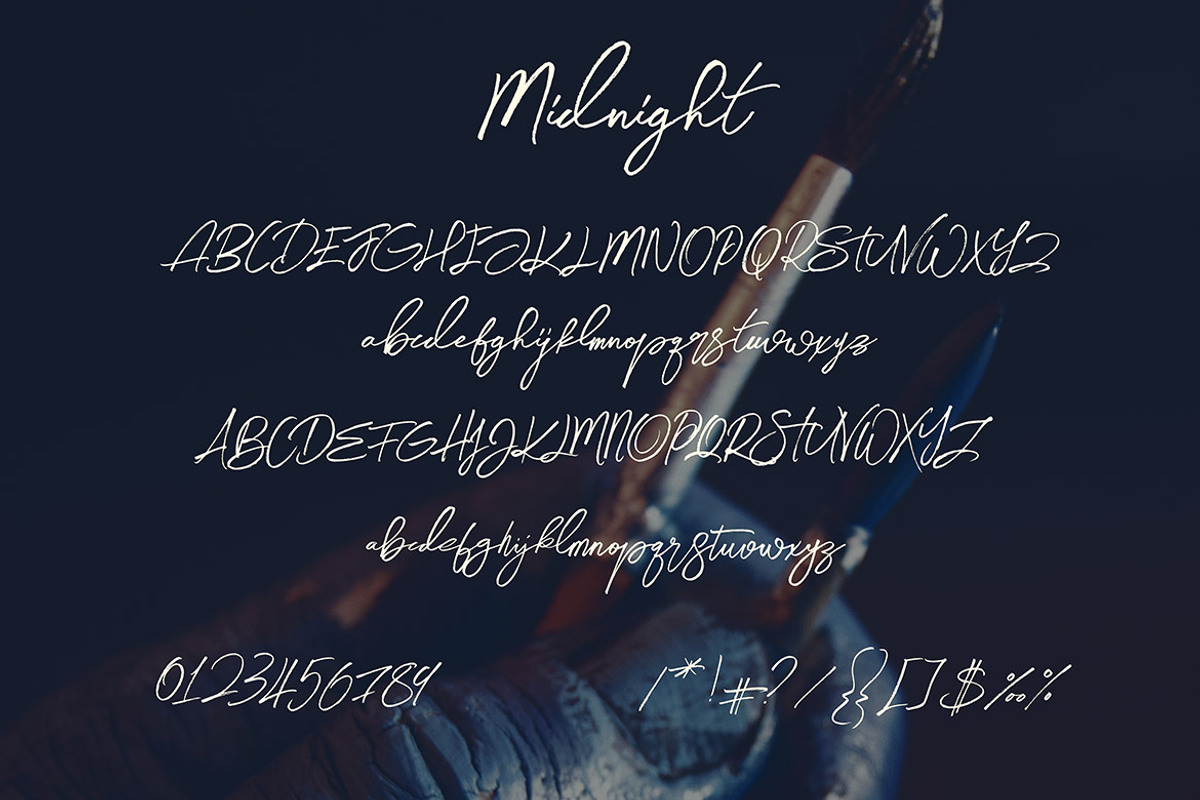 Midnight
ABCDEFGHIJKLMNOPQRSTUVWXYZ
abcdefghijklmnopqrstuvwxyz
ABCDEFGHIJKLMNOPQRSTUVWXYZ
abcdefghijklmnopqrstuvwxyz
0123456789 |*!#?/{}[]$‰%